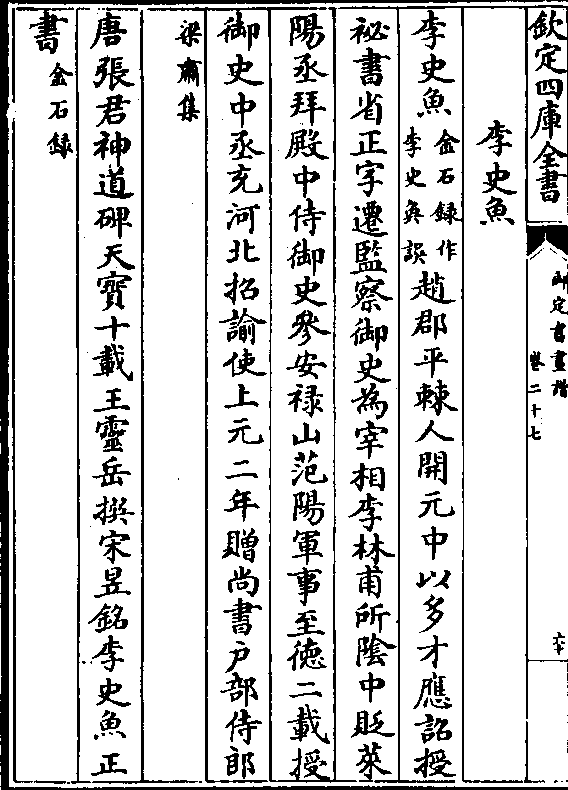 欽定四庫全書
御定書畫譜
卷二十七
六十
李史魚
李史魚
金石録作
李史奂誤
趙郡平棘人開元中以多才應詔授
祕書省正字遷監察御史為宰相李林甫所陰中貶萊
陽丞拜殿中侍御史參安禄山范陽軍事至徳二載授
御史中丞充河北招諭使上元二年贈尚書户部侍郎
梁肅集
唐張君神道碑天寳十載王靈岳撰宋昱銘李史魚正
書
金石録